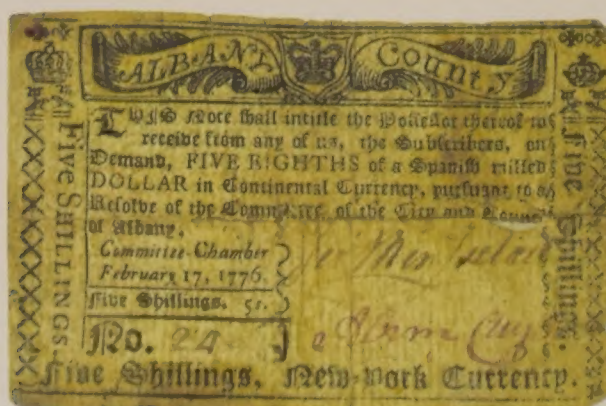 ALBANY County
THIS Note shall intitle the Possessor thereof to
receive from any of us, the Subscribers, on
Demand, FIVE EIGHTHS of a Spanish milled
DOLLAR in Continental Currency, pursuant to a
Resolve of the Committee, of the City and County
of Albany.
Committee-Chamber
February 17, 1776.
Five Shillings. 5s.
No. 24
Five Shillings, New-York Currency.
Five SHILLINGS.
Five Shillings.